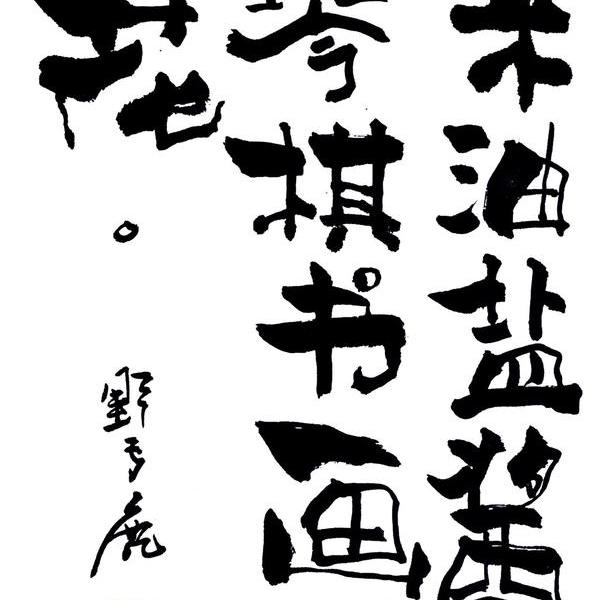 米油盐酱
琴棋书画
花。
野鹿